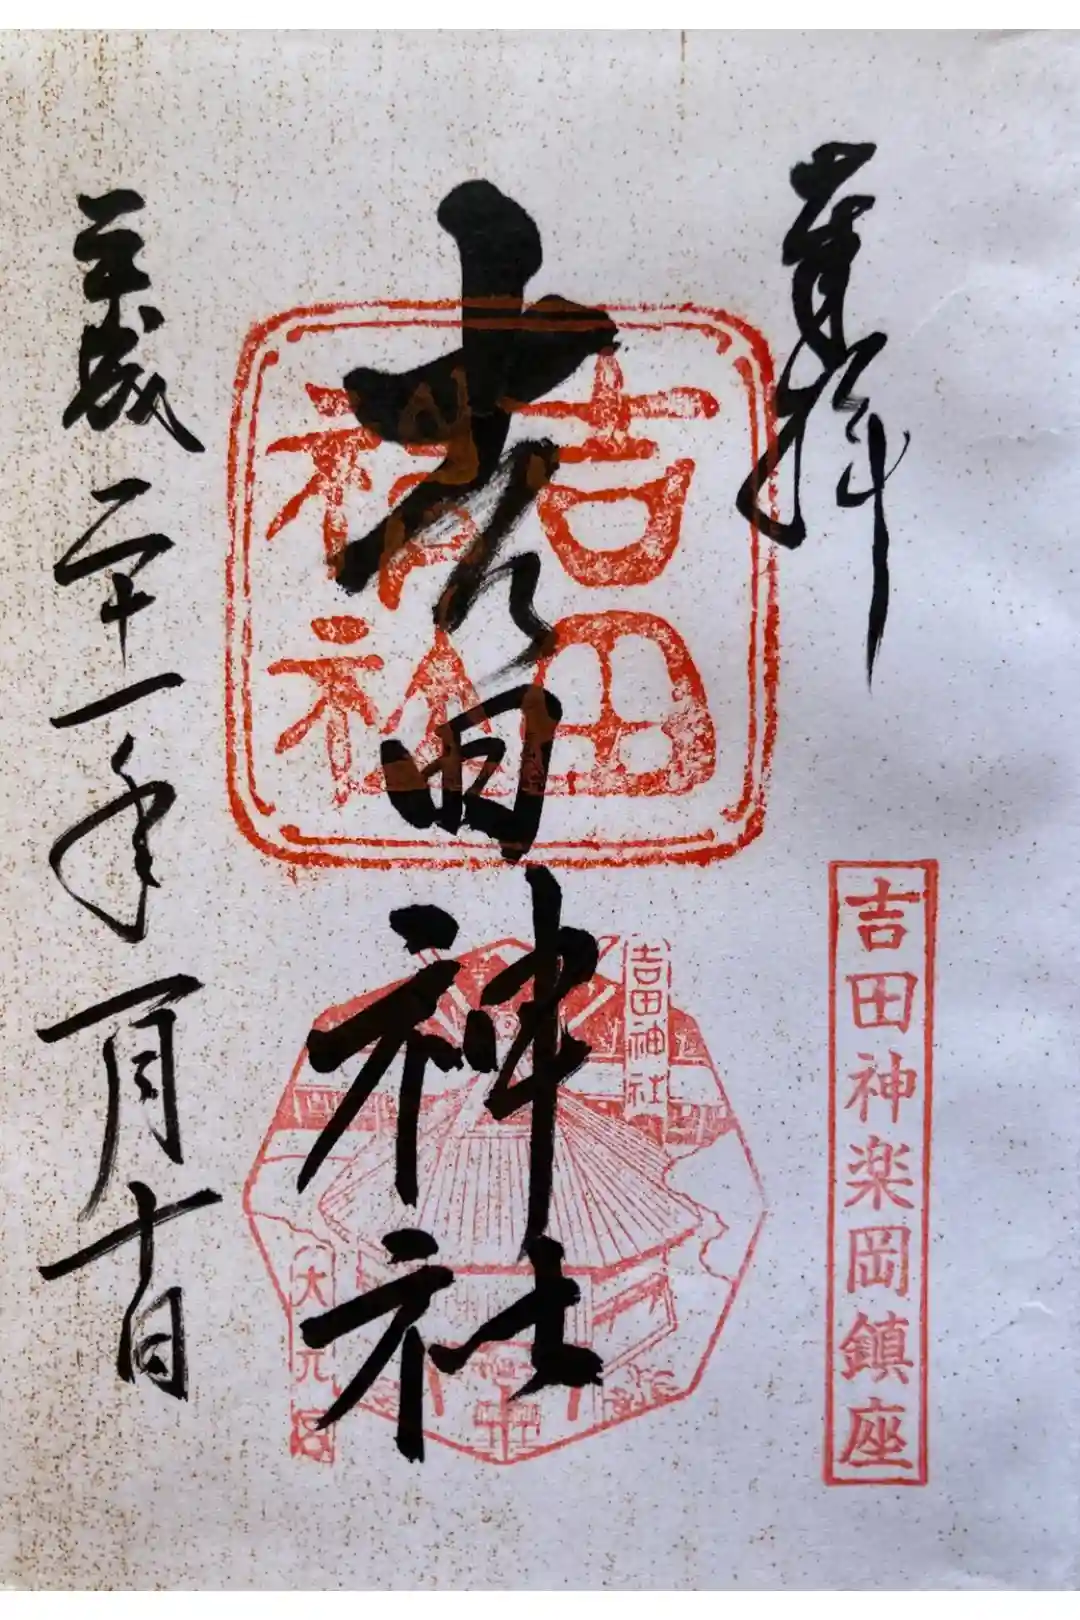 奉拝
吉田神楽岡鎮座
吉田神社
吉田
神社
吉田神社
大元宮
平成二十一年一月十日